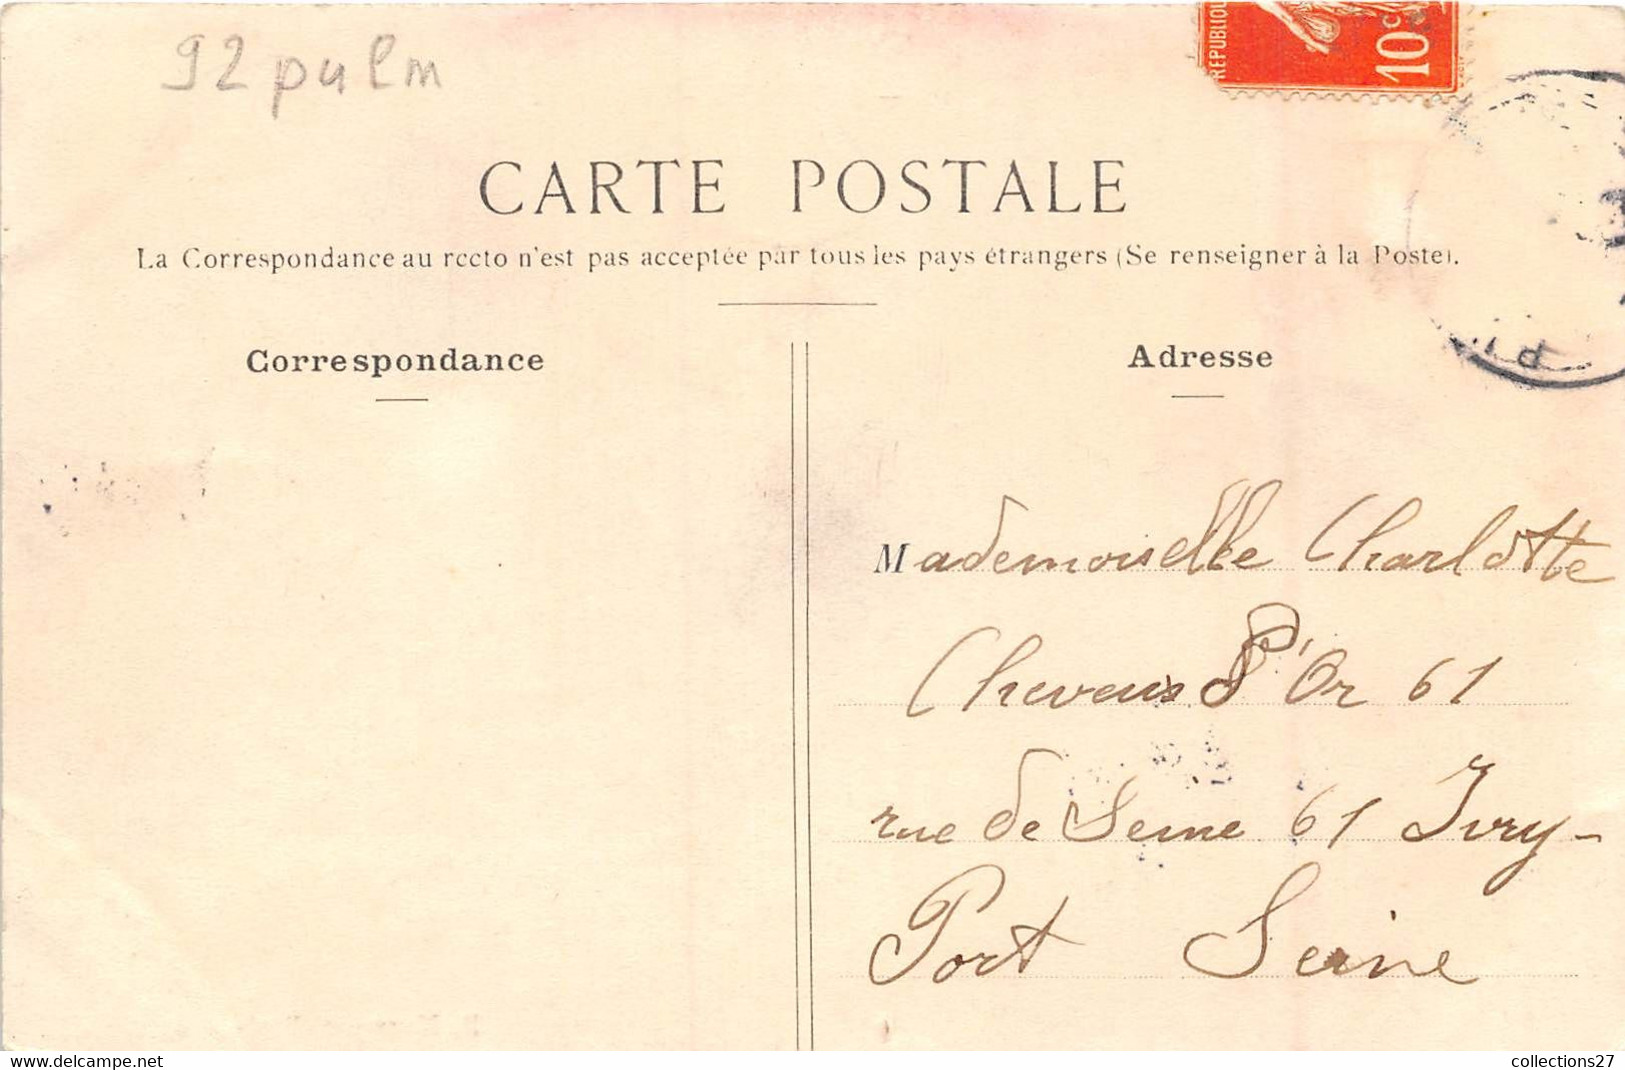 92 pulm
RÉPUBLIQU
10c
CARTE POSTALE
La Correspondance au recto n'est pas acceptée par tous les pays étrangers (Se renseigner à la Poste).
Correspondance
Adresse
Mademoiselle Charlotte
Cheveux d'Or 61
rue de Seine 61 Ivry-
Port Seine
collections27